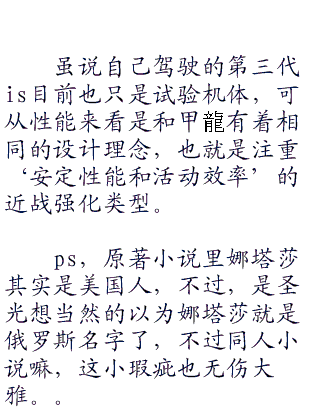 虽说自己驾驶的第三代
is目前也只是试验机体，可
从性能来看是和甲龍有着相
同的设计理念，也就是注重
‘安定性能和活动效率’的
近战强化类型。
ps，原著小说里娜塔莎
其实是美国人，不过，是圣
光想当然的以为娜塔莎就是
俄罗斯名字了，不过同人小
说嘛，这小瑕疵也无伤大
雅。。